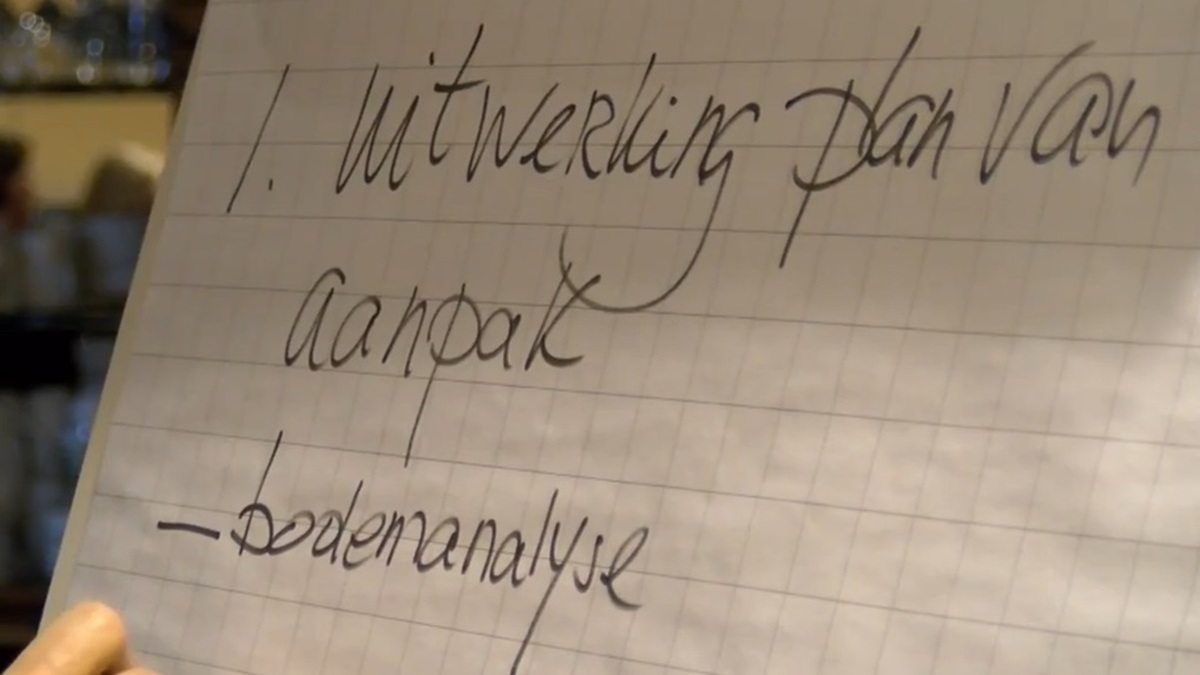 1. Uitwerking plan van
aanpak
- bodemanalyse